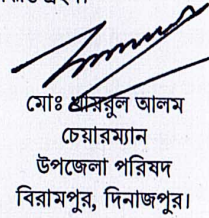 মোঃ খায়রুল আলম
চেয়ারম্যান
উপজেলা পরিষদ
বিরামপুর, দিনাজপুর।